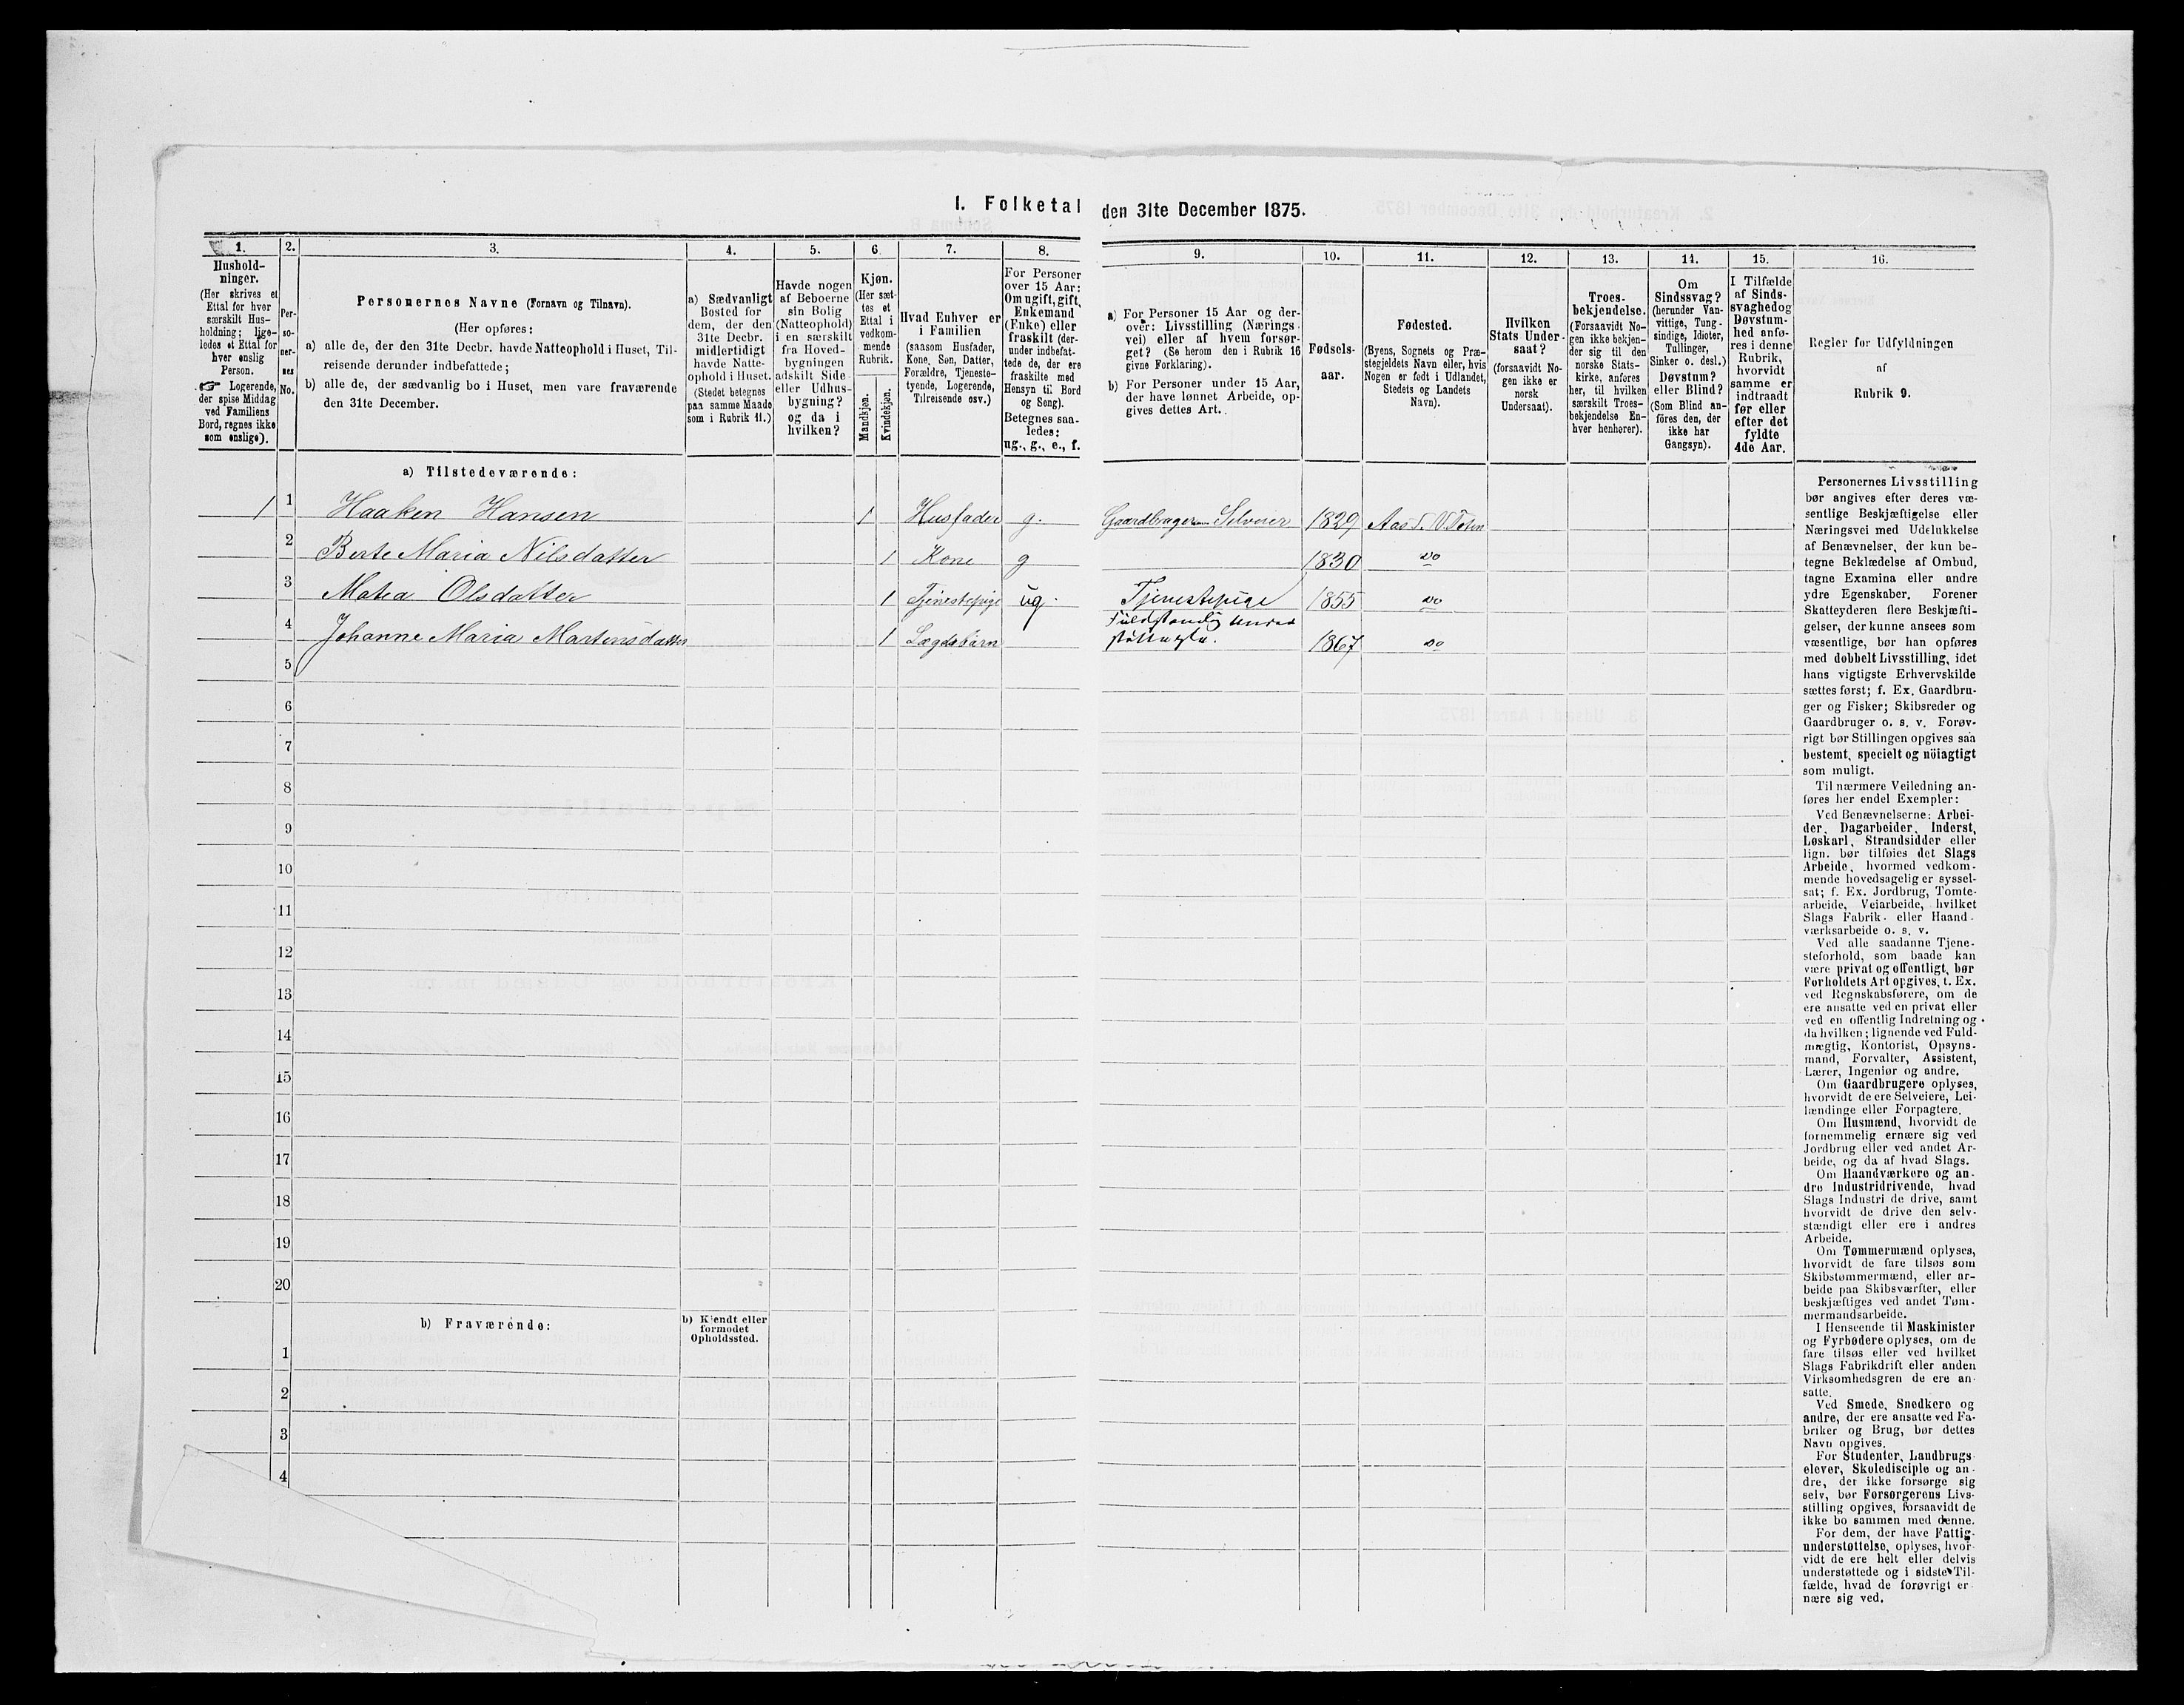 I. Folketal den 31te December 1875.
1. 2. 3. 4. 5. 6. 7. 8. 9. 10. 11. 12. 13. 14. 15. 16.
Hushold-
ninger.
(Her skrives et
Ettal for hver
særskilt Hus-
holdning; lige-
ledes et Ettal for
hver enslig
Person.
☞ Logerende,
der spise Middag
ved Familiens
Bord, regnes ikke
som enslige).
Per-
so-
ner-
nes
No.
Personernes Navne (Fornavn og Tilnavn).
(Her opføres:
a) alle de, der den 31te Decbr. havde Natteophold i Huset, Til-
reisende derunder indbefattede;
b) alle de, der sædvanlig bo i Huset, men vare fraværende
den 31te December.
a) Sædvanligt
Bosted for
dem, der den
31te Decbr.
midlertidigt
havde Natte-
ophold i Huset.
(Stedet betegnes
paa samme Maade
som i Rubrik 11.)
Havde nogen
af Beboerne
sin Bolig
(Natteophold)
i en særskilt
fra Hoved-
bygningen
adskilt Side-
eller Udhus-
bygning?
og da i
hvilken?
Kjøn.
(Her sæt-
tes et
Ettal i
vedkom-
mende
Rubrik.
Mandkjøn.
Kvindekjøn.
Hvad Enhver er
i Familien
(saasom Husfader,
Kone, Søn, Datter,
Forældre, Tjeneste-
tyende, Logerende,
Tilreisende osv.)
For Personer
over 15 Aar:
Om ugift, gift,
Enkemand
(Enke) eller
fraskilt (der-
under indbefat-
tede de, der ere
fraskilte med
Hensyn til Bord
og Seng).
Betegnes saa-
ledes:
ug., g., e., f.
a) For Personer 15 Aar og der-
over: Livsstilling (Nærings-
vei) eller af hvem forsør-
get? (Se herom den i Rubrik 16
givne Forklaring).
b) For Personer under 15 Aar,
der have lønnet Arbeide, op-
gives dettes Art.
Fødsels-
aar.
Fødested.
(Byens, Sognets og Præ-
stegjeldets Navn eller, hvis
Nogen er født i Udlandet,
Stedets og Landets
Navn).
Hvilken
Stats Under-
saat?
(forsaavidt No-
gen ikke er
norsk
Undersaat).
Troes-
bekjendelse.
(Forsaavidt No-
gen ikke bekjen-
der sig til den
norske Stats-
kirke, anføres
her, til hvilken
særskilt Troes-
bekjendelse En-
hver henhører).
Om
Sindssvag?
(herunder Van-
vittige, Tung-
sindige, Idioter,
Tullinger,
Sinker o. desl.)
Døvstum?
eller Blind?
(Som Blind an-
føres den, der
ikke har
Gangsyn).
I Tilfælde
af Sinds-
svaghed og
Døvstum-
hed anfø-
res i denne
Rubrik,
hvorvidt
samme er
indtraadt
før eller
efter det
fyldte
4de Aar.
Regler for Udfyldningen
af
Rubrik 9.
a) Tilstedeværende:
1 1 Haaken Hansen 1 Husfader g. Gaardbruger Selveier 1829 Aas S. V. Toten
2 Berte Maria Nilsdatter 1 Kone g 1830 do
3 Matea Olsdatter 1 Tjenestepige ug. Tjenestepige 1855 do
4 Johanne Maria Martinsdatter 1 Lægdsbarn Fuldstændig under
støttelse. 1867 do
5
6
7
8
9
10
11
12
13
14
15
16
17
18
19
20
b) Fraværende:
b) Kjendt eller
formodet
Opholdssted.
1
2
3
4
Personernes Livsstilling
bør angives efter deres væ-
sentlige Beskjæftigelse eller
Næringsvei med Udelukkelse
af Benævnelser, der kun be-
tegne Beklædelse af Ombud,
tagne Examina eller andre
ydre Egenskaber. Forener
Skatteyderen flere Beskjæfti-
gelser, der kunne ansees som
væsentlige, bør han opføres
med dobbelt Livsstilling, idet
hans vigtigste Erhvervskilde
sættes først; f. Ex. Gaardbru-
ger og Fisker; Skibsreder og
Gaardbruger o. s. v. Forøv-
rigt bør Stillingen opgives saa
bestemt, specielt og nöiagtigt
som muligt.
Til nærmere Veiledning an-
føres her endel Exempler:
Ved Benævnelserne: Arbei-
der, Dagarbeider, Inderst,
Løskarl, Strandsidder eller
lign. bør tilføies det Slags
Arbeide, hvormed vedkom-
mende hovedsagelig er syssel-
sat; f. Ex. Jordbrug, Tomte-
arbeide, Veiarbeide, hvilket
Slags Fabrik- eller Haand-
værksarbeide o. s. v.
Ved alle saadanne Tjene-
steforhold, som baade kan
være privat og offentligt, bør
Forholdets Art opgives, t. Ex.
ved Regnskabsførere, om de
ere ansatte ved en privat eller
ved en offentlig Indretning og
da hvilken; lignende ved Fuld-
mægtig, Kontorist, Opsyns-
mand, Forvalter, Assistent,
Lærer, Ingeniør og andre.
Om Gaardbrugere oplyses,
hvorvidt de ere Selveiere, Lei-
lændinge eller Forpagtere.
Om Husmænd, hvorvidt de
fornemmelig ernære sig ved
Jordbrug eller ved andet Ar-
beide, og da af hvad Slags.
Om Haandværkere og an-
dre Industridrivende, hvad
Slags Industri de drive, samt
hvorvidt de drive den selv-
stændigt eller ere i andres
Arbeide.
Om Tømmermænd oplyses,
hvorvidt de fare tilsøs som
Skibstømmermænd, eller ar-
beide paa Skibsværfter, eller
beskjæftiges ved andet Tøm-
mermandsarbeide.
I Henseende til Maskinister
og Fyrbødere oplyses, om de
fare tilsøs eller ved hvilket
Slags Fabrikdrift eller anden
Virksomhedsgren de ere an-
satte.
Ved Smede, Snedkere og
andre, der ere ansatte ved Fa-
briker og Brug, bør dettes
Navn opgives.
For Studenter, Landbrugs-
elever, Skoledisciple og an-
dre, der ikke forsørge sig
selv, bør Forsørgerens Livs-
stilling opgives, forsaavidt de
ikke bo sammen med denne.
For dem, der have Fattig-
understøttelse, oplyses, hvor-
vidt de ere helt eller delvis
understøttede og i sidste Til-
fælde, hvad de forøvrigt er-
nære sig ved.